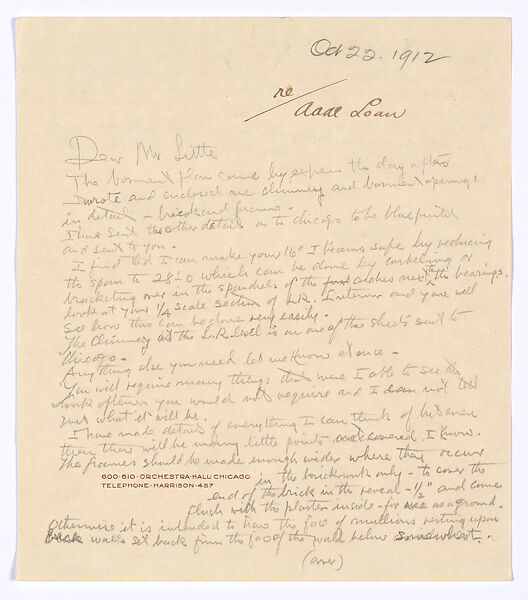 Oct 22. 1912
re/
Aaae Loan
Dear Mr Little
The basement plan came by express the day after
I wrote and enclosed one chimney and basement openings
in detail - brick and frame.
I have sent the other details on to chicago to be blueprinted
and sent to you -
I find that I can make your 16" I beams safe by reducing
the span to 28'-0 which can be done by corbelling or
bracketing over in the spandrels of the arches near the bearings.
look at your 1/4 scale section of L.R. Interior and you will
see how this can be done very easily.
The chimney at the L.R. level is on one of the sheets sent to
Chicago -
Anything else you need let me know at once -
You will require many things that were I able to see the
work oftener you would not require and I can not tell
just what it will be.
I have made details of everything I can think of but even
then there will be many little points not covered I know.
The frames should be made enough wider where they occur
600-610·ORCHESTRA·HALL·CHICAGO
TELEPHONE·HARRISON·487
in the brickwork only - to cover the
end of the brick in the reveal - 1/2" and come
flush with the plaster inside - for use as a ground.
Otherwise it is intended to have the face of mullions resting upon
walls set back from the face of the wall below somewhat.
(over)